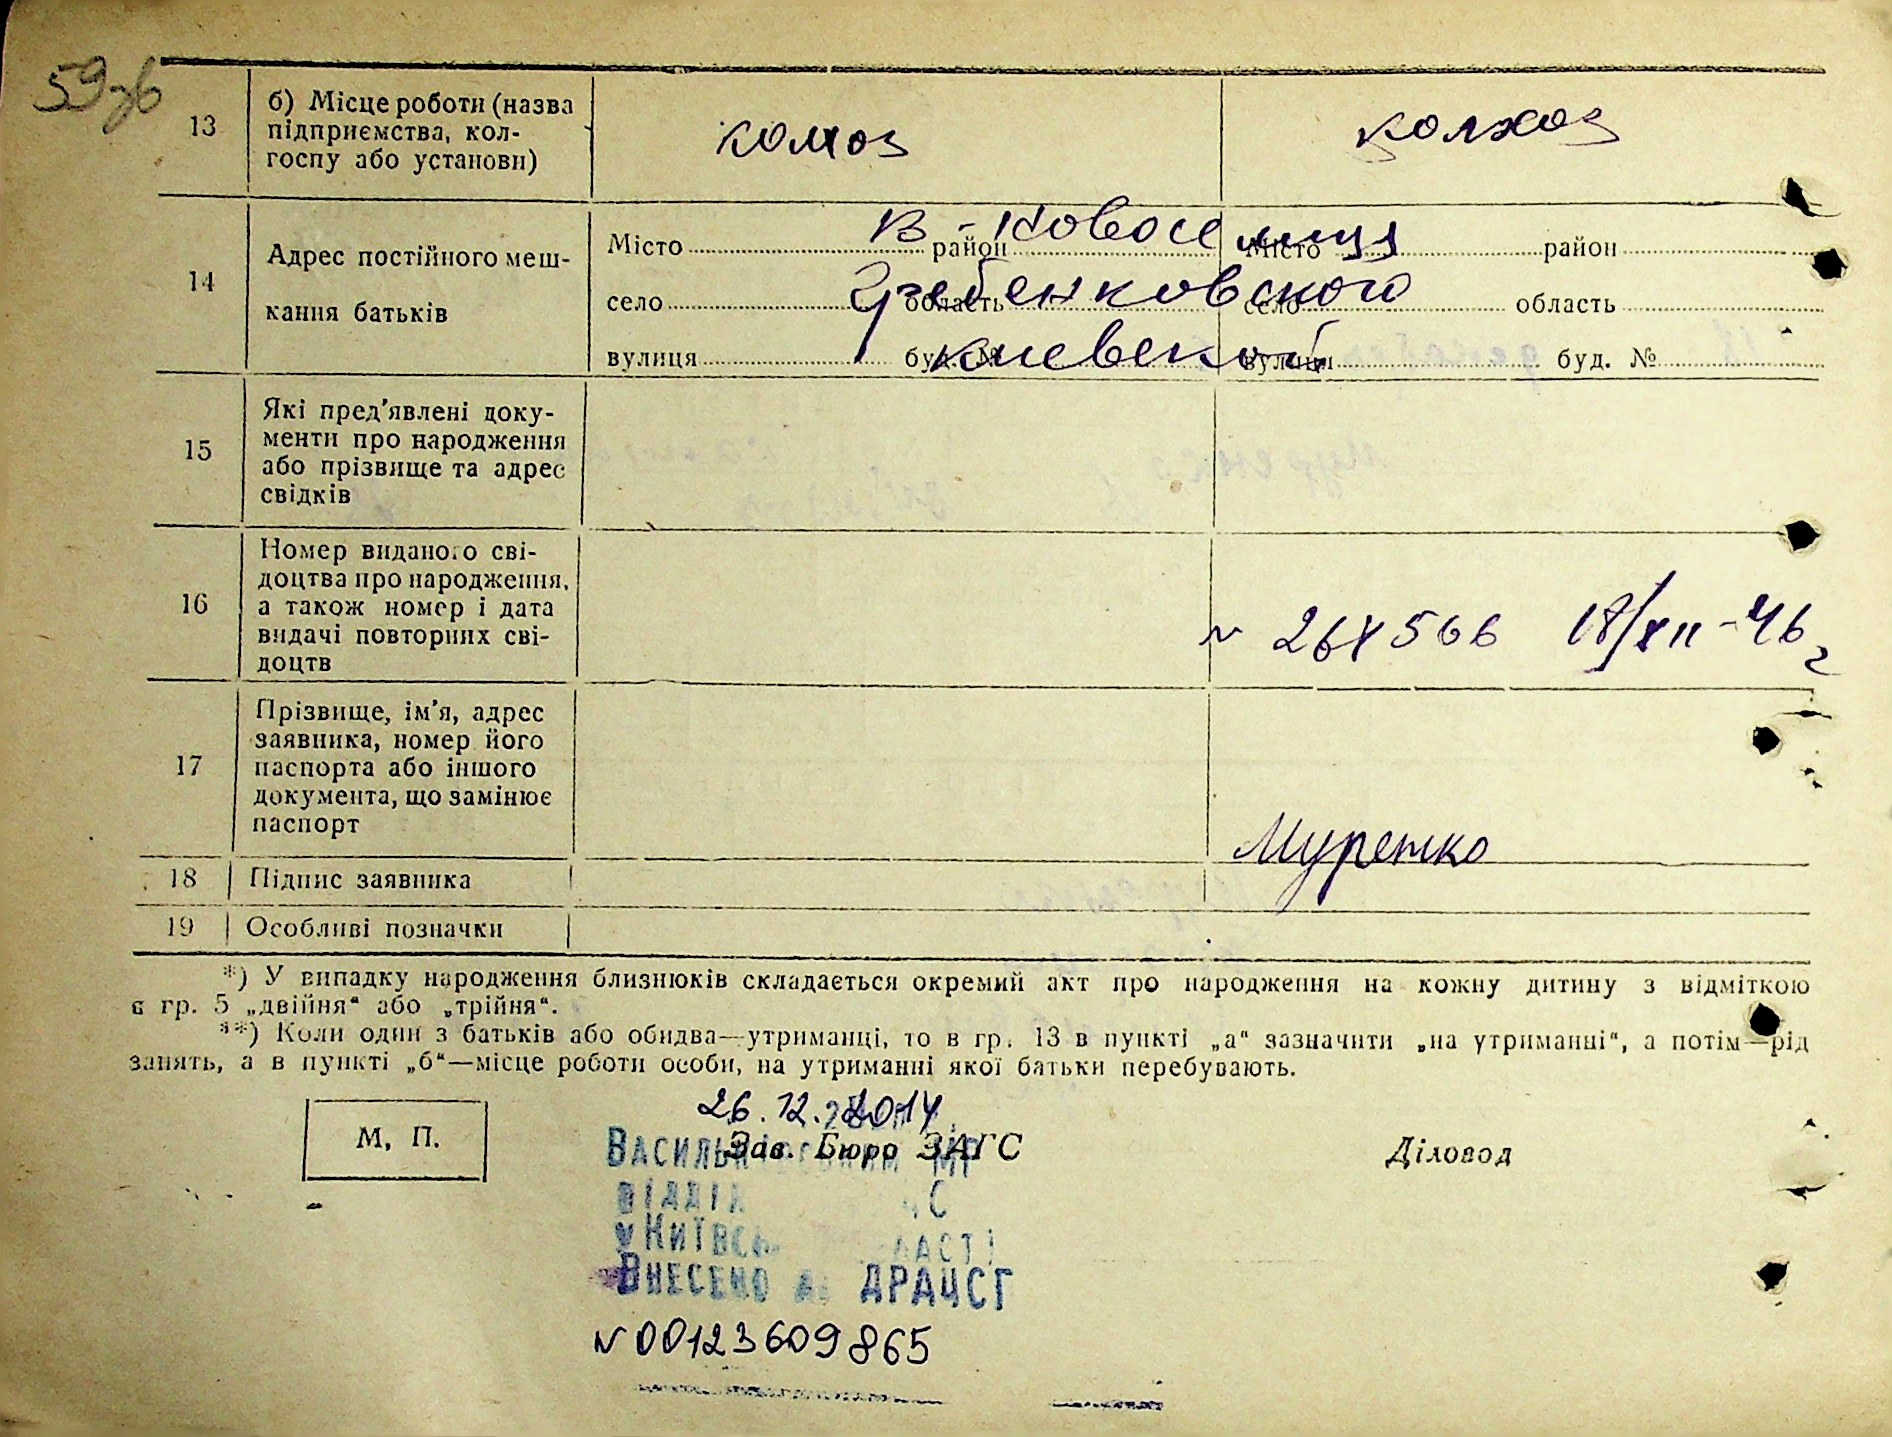 59зв
13
б) Місце роботи (назва
підприємства, кол-
госпу або установи)
колхоз
колхоз
14
Адрес постійного меш-
кання батьків
Місто район Місто район
В-Новоселиця
село область село область
Гребенковского
вулиця буд. № вулиця буд. №
киевской
15
Які пред'явлені доку-
менти про народження
або прізвище та адрес
свідків
16
Номер виданого сві-
доцтва про народження,
а також номер і дата
видачі повторних сві-
доцтв
№ 264566 18/XII-46 г
17
Прізвище, ім'я, адрес
заявника, номер його
паспорта або іншого
документа, що замінює
паспорт
18
Підпис заявника
Муренко
19
Особливі позначки
*) У випадку народження близнюків складається окремий акт про народження на кожну дитину з відміткою
в гр. 5 „двійня“ або „трійня“.
**) Коли один з батьків або обидва—утриманці, то в гр. 13 в пункті „а“ зазначити „на утриманні“, а потім—рід
занять, а в пункті „б“—місце роботи особи, на утриманні якої батьки перебувають.
М. П.
26.12.2014
Зав. Бюро ЗАГС
Діловод
у Київс
Внесено до ДРАЦСГ
№ 00123609865